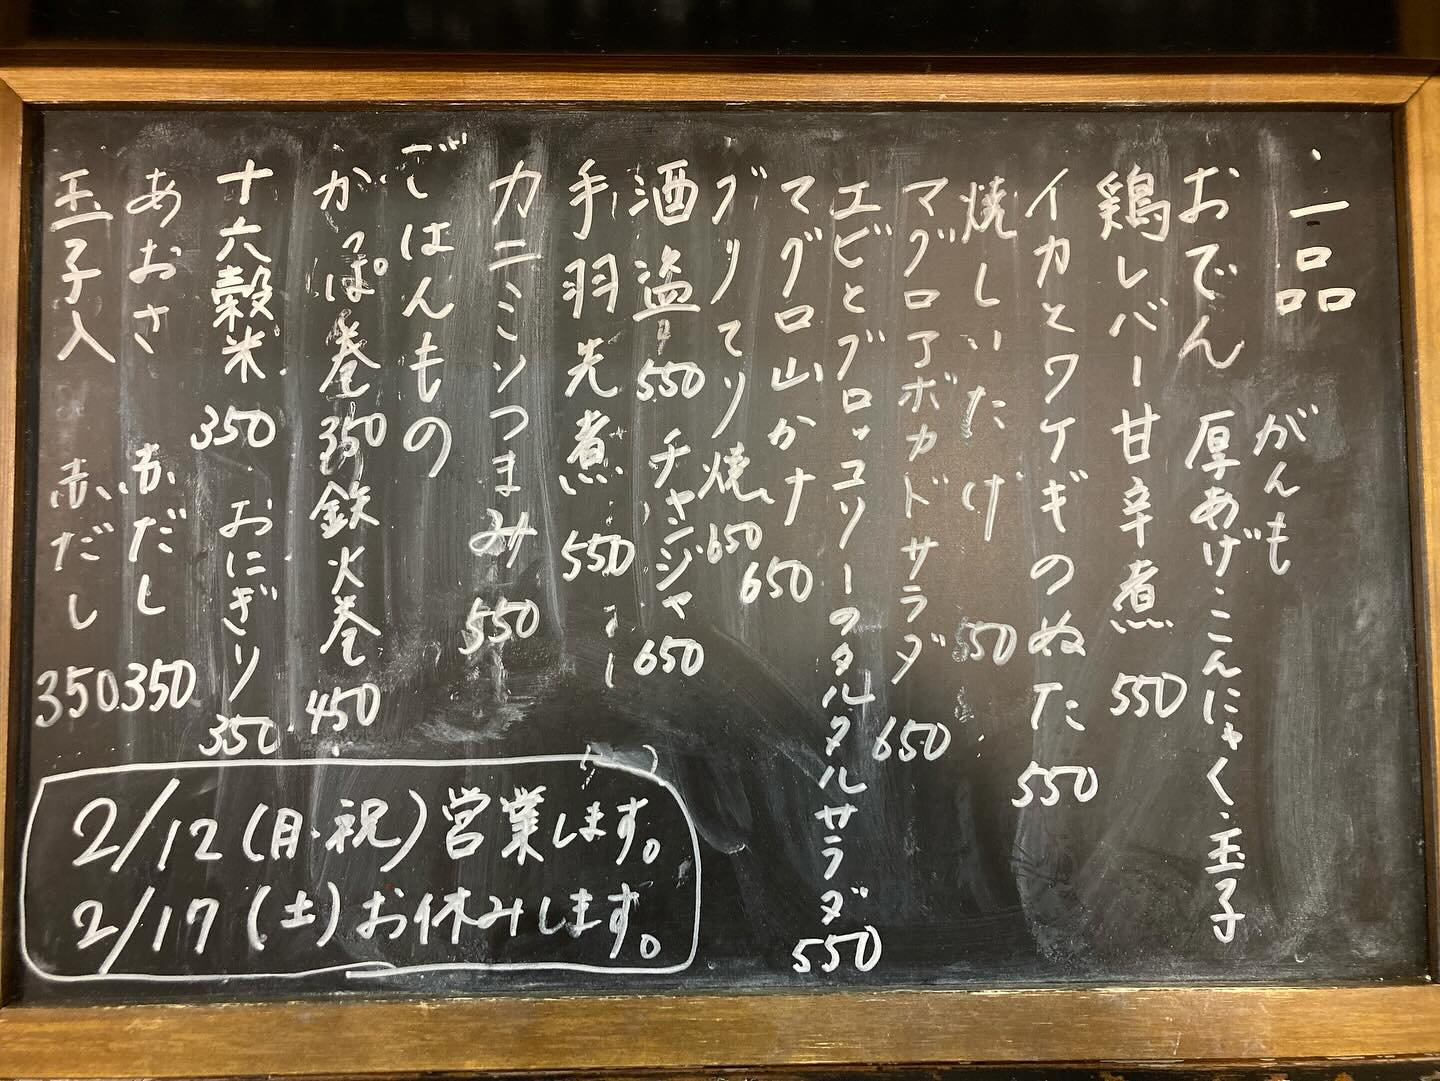 一品
おでん がんも
厚あげ・こんにゃく・玉子
鶏レバー甘辛煮 550
イカとワケギのぬた 550
焼しいたけ 550
マグロアボカドサラダ 650
エビとブロッコリーのタルタルサラダ 550
マグロ山かけ 650
ブリてり焼 650
酒盗 550 チャンジャ 650
手羽先煮 550
カニミソつまみ 550
ごはんもの
かっぱ巻 350 鉄火巻 450
十六穀米 350 おにぎり 350
あおさ 赤だし 350
玉子入 赤だし 350
2/12(月・祝)営業します。
2/17(土)お休みします。